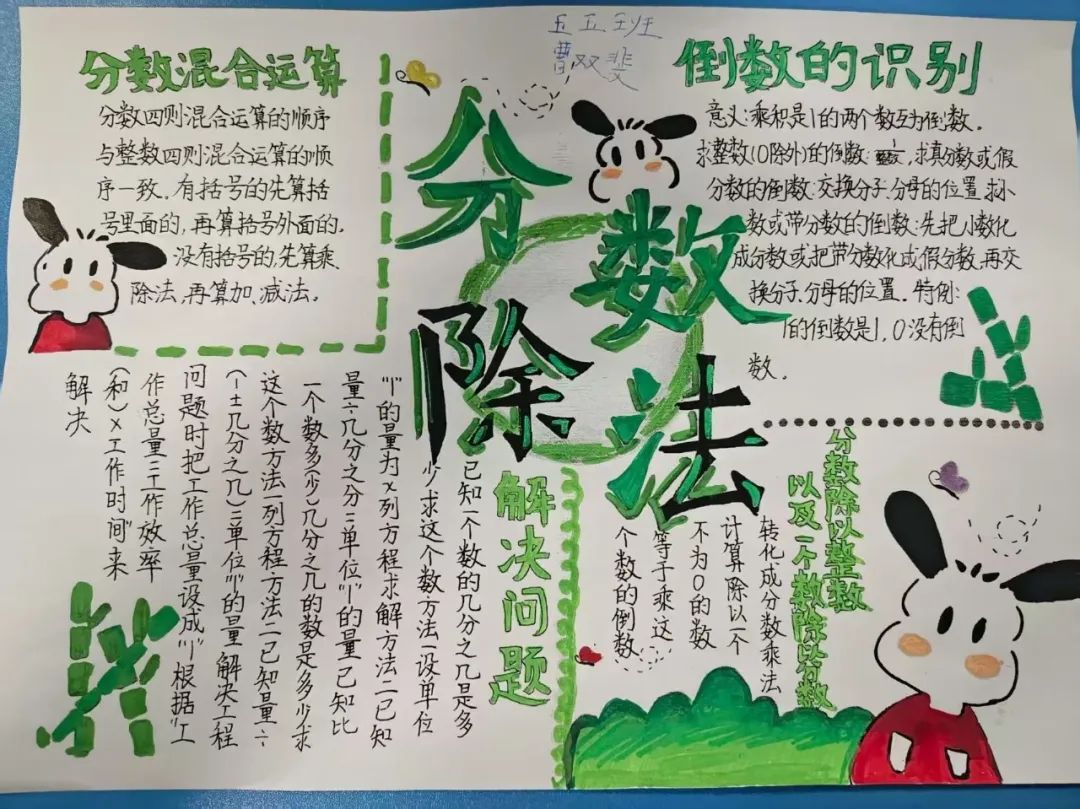 五五班
曹双斐
分数混合运算
分数四则混合运算的顺序
与整数四则混合运算的顺
序一致。有括号的先算括
号里面的，再算括号外面的。
没有括号的，先算乘
除法，再算加、减法。
分数
除法
倒数的识别
意义：乘积是1的两个数互为倒数。
求整数(0除外)的倒数：，求真分数或假
分数的倒数：交换分子、分母的位置。求小
数或带分数的倒数：先把小数化
成分数或把带分数化成假分数，再交
换分子、分母的位置。特例：
1的倒数是1，0没有倒
数。
解决问题
已知一个数的几分之几是多
少求这个数方法一设单位
"1"的量为x列方程求解方法一已知
量÷几分之分=单位"1"的量已知比
一个数多(少)几分之几的数是多少求
这个数方法一列方程方法二已知量÷
(1±几分之几)=单位"1"的量解决工程
问题时把工作总量设成"1"根据"工
作总量=工作效率
(和)×工作时间"来
解决
分数除以整数
以及一个数除以分数
转化成分数乘法
计算除以一个
不为0的数
等于乘这
个数的倒数